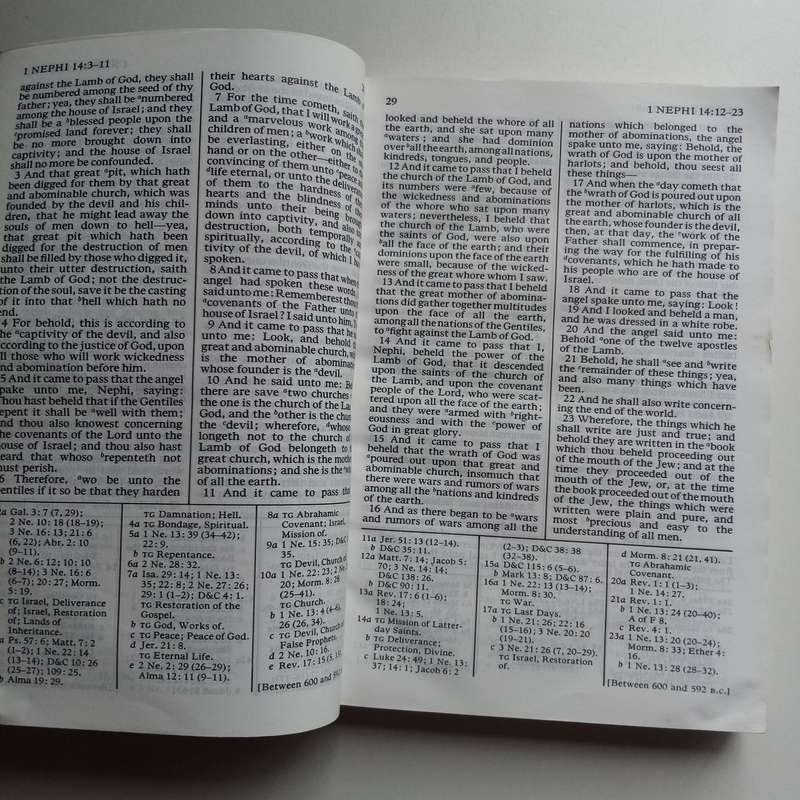 1 NEPHI 14:3–11
against the Lamb of God, they shall
be numbered among the seed of thy
father; yea, they shall be ᵃnumbered
among the house of Israel; and they
shall be a ᵇblessed people upon the
ᶜpromised land forever; they shall
be no more brought down into
captivity; and the house of Israel
shall no more be confounded.
3 And that great ᵃpit, which hath
been digged for them by that great
and abominable church, which was
founded by the devil and his chil-
dren, that he might lead away the
souls of men down to hell—yea,
that great pit which hath been
digged for the destruction of men
shall be filled by those who digged it,
unto their utter destruction, saith
the Lamb of God; not the destruc-
tion of the soul, save it be the casting
of it into that ᵇhell which hath no
end.
4 For behold, this is according to
the ᵃcaptivity of the devil, and also
according to the justice of God, upon
all those who will work wickedness
and abomination before him.
5 And it came to pass that the angel
spake unto me, Nephi, saying:
Thou hast beheld that if the Gentiles
repent it shall be ᵃwell with them;
and thou also knowest concerning
the covenants of the Lord unto the
house of Israel; and thou also hast
heard that whoso ᵇrepenteth not
must perish.
6 Therefore, ᵃwo be unto the
Gentiles if it so be that they harden
their hearts against the Lamb of
God.
7 For the time cometh, saith the
Lamb of God, that I will work a great
and a ᵃmarvelous work among the
children of men; a ᵇwork which shall
be everlasting, either on the one
hand or on the other—either to the
convincing of them unto ᶜpeace and
ᵈlife eternal, or unto the deliverance
of them to the hardness of their
hearts and the blindness of their
minds unto their being brought
down into captivity, and also into
destruction, both temporally and
spiritually, according to the ᵉcap-
tivity of the devil, of which I have
spoken.
8 And it came to pass that when the
angel had spoken these words, he
said unto me: Rememberest thou the
ᵃcovenants of the Father unto the
house of Israel? I said unto him, Yea.
9 And it came to pass that he said
unto me: Look, and behold that
great and abominable church, which
is the mother of abominations,
whose founder is the ᵃdevil.
10 And he said unto me: Behold
there are save ᵃtwo churches only;
the one is the church of the Lamb of
God, and the ᵇother is the church of
the ᶜdevil; wherefore, ᵈwhoso be-
longeth not to the church of the
Lamb of God belongeth to that
great church, which is the mother of
abominations; and she is the ᵉwhore
of all the earth.
11 And it came to pass that
2a Gal. 3: 7 (7, 29);
2 Ne. 10: 18 (18–19);
3 Ne. 16: 13; 21: 6
(6, 22); Abr. 2: 10
(9–11).
b 2 Ne. 6: 12; 10: 10
(8–14); 3 Ne. 16: 6
(6–7); 20: 27; Morm.
5: 19.
c TG Israel, Deliverance
of; Israel, Restoration
of; Lands of
Inheritance.
3a Ps. 57: 6; Matt. 7: 2
(1–2); 1 Ne. 22: 14
(13–14); D&C 10: 26
(25–27); 109: 25.
b Alma 19: 29.
TG Damnation; Hell.
4a TG Bondage, Spiritual.
5a 1 Ne. 13: 39 (34–42);
22: 9.
b TG Repentance.
6a 2 Ne. 28: 32.
7a Isa. 29: 14; 1 Ne. 13:
35; 22: 8; 2 Ne. 27: 26;
29: 1 (1–2); D&C 4: 1.
TG Restoration of the
Gospel.
b TG God, Works of.
c TG Peace; Peace of God.
d Jer. 21: 8.
TG Eternal Life.
e 2 Ne. 2: 29 (26–29);
Alma 12: 11 (9–11).
8a TG Abrahamic
Covenant; Israel,
Mission of.
9a 1 Ne. 15: 35; D&C
35.
TG Devil, Church of
10a 1 Ne. 22: 23; 2 N
20; Morm. 8: 28
(25–41).
TG Church.
b 1 Ne. 13: 4 (4–6),
26 (26, 34).
c TG Devil, Church of
False Prophets.
d 2 Ne. 10: 16.
e Rev. 17: 15 (5, 15)
[Between 600 and 592
29
1 NEPHI 14:12–23
looked and beheld the whore of all
the earth, and she sat upon many
ᵃwaters; and she had dominion
over ᵇall the earth, among all nations,
kindreds, tongues, and people.
12 And it came to pass that I beheld
the church of the Lamb of God, and
its numbers were ᵃfew, because of
the wickedness and abominations
of the whore who sat upon many
waters; nevertheless, I beheld that
the church of the Lamb, who were
the saints of God, were also upon
ᵇall the face of the earth; and their
dominions upon the face of the earth
were small, because of the wicked-
ness of the great whore whom I saw.
13 And it came to pass that I beheld
that the great mother of abomina-
tions did gather together multitudes
upon the face of all the earth,
among all the nations of the Gentiles,
to ᵃfight against the Lamb of God.
14 And it came to pass that I,
Nephi, beheld the power of the
Lamb of God, that it descended
upon the saints of the church of
the Lamb, and upon the covenant
people of the Lord, who were scat-
tered upon all the face of the earth;
and they were ᵃarmed with ᵇright-
eousness and with the ᶜpower of
God in great glory.
15 And it came to pass that I
beheld that the wrath of God was
ᵃpoured out upon that great and
abominable church, insomuch that
there were wars and rumors of wars
among all the ᵇnations and kindreds
of the earth.
16 And as there began to be ᵃwars
and rumors of wars among all the
nations which belonged to the
mother of abominations, the angel
spake unto me, saying: Behold, the
wrath of God is upon the mother of
harlots; and behold, thou seest all
these things—
17 And when the ᵃday cometh that
the ᵇwrath of God is poured out upon
the mother of harlots, which is the
great and abominable church of all
the earth, whose founder is the devil,
then, at that day, the ᶜwork of the
Father shall commence, in prepar-
ing the way for the fulfilling of his
ᵈcovenants, which he hath made to
his people who are of the house of
Israel.
18 And it came to pass that the
angel spake unto me, saying: Look!
19 And I looked and beheld a man,
and he was dressed in a white robe.
20 And the angel said unto me:
Behold ᵃone of the twelve apostles
of the Lamb.
21 Behold, he shall ᵃsee and ᵇwrite
the ᶜremainder of these things; yea,
and also many things which have
been.
22 And he shall also write concern-
ing the end of the world.
23 Wherefore, the things which he
shall write are just and true; and
behold they are written in the ᵃbook
which thou beheld proceeding out
of the mouth of the Jew; and at the
time they proceeded out of the
mouth of the Jew, or, at the time
the book proceeded out of the mouth
of the Jew, the things which were
written were plain and pure, and
most ᵇprecious and easy to the
understanding of all men.
11a Jer. 51: 13 (12–14).
b D&C 35: 11.
12a Matt. 7: 14; Jacob 5:
70; 3 Ne. 14: 14;
D&C 138: 26.
b D&C 90: 11.
13a Rev. 17: 6 (1–6);
18: 24;
1 Ne. 13: 5.
14a TG Mission of Latter-
day Saints.
b TG Deliverance;
Protection, Divine.
c Luke 24: 49; 1 Ne. 13:
37; 14: 1; Jacob 6: 2
(2–3); D&C 38: 38
(32–38).
15a D&C 115: 6 (5–6).
b Mark 13: 8; D&C 87: 6.
16a 1 Ne. 22: 13 (13–14);
Morm. 8: 30.
TG War.
17a TG Last Days.
b 1 Ne. 21: 26; 22: 16
(15–16); 3 Ne. 20: 20
(19–21).
c 3 Ne. 21: 26 (7, 20–29).
TG Israel, Restoration
of.
d Morm. 8: 21 (21, 41).
TG Abrahamic
Covenant.
20a Rev. 1: 1 (1–3);
1 Ne. 14: 27.
21a Rev. 1: 1.
b 1 Ne. 13: 24 (20–40);
A of F 8.
c Rev. 4: 1.
23a 1 Ne. 13: 20 (20–24);
Morm. 8: 33; Ether 4:
16.
b 1 Ne. 13: 28 (28–32).
[Between 600 and 592 B.C.]